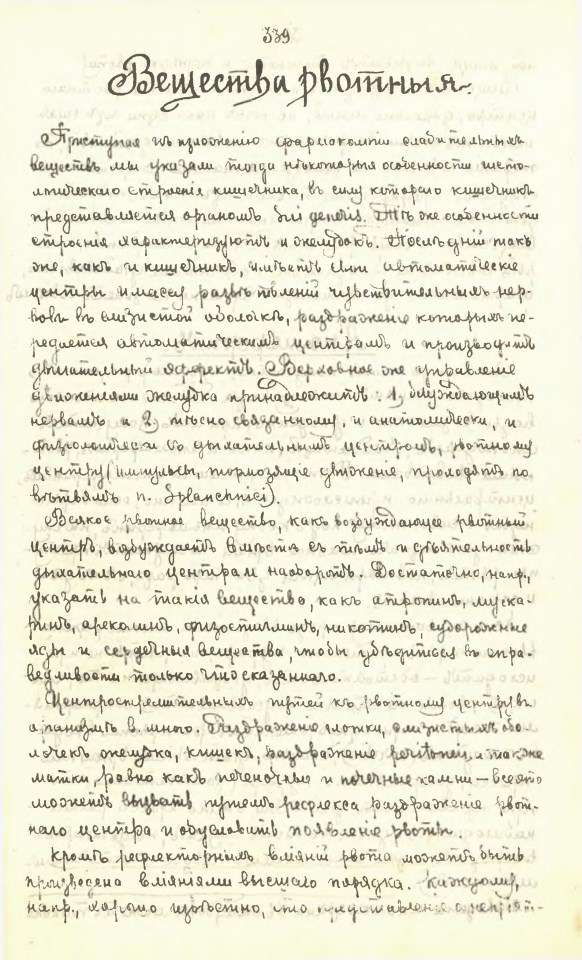 339
Вещества рвотныя.
Приступая къ изложенію фармакологіи слабительныхъ
веществъ мы указали тогда нѣкоторыя особенности гисто-
логическаго строенія кишечника, въ силу котораго кишечникъ
представляется органомъ sui generis. Тѣ же особенности
строенія характеризуютъ и желудокъ. Послѣдній такъ
же, какъ и кишечникъ, имѣетъ свои автоматическіе
центры и массу развѣтвленій чувствительныхъ нер-
вовъ въ слизистой оболочкѣ, раздраженіе которыхъ пе-
редается автоматическимъ центрамъ и производитъ
двигательный эффектъ. Верховное же управленіе
движеніями желудка принадлежитъ: 1) блуждающимъ
нервамъ и 2) тѣсно связанному, и анатомически, и
физіологически съ дыхательнымъ центромъ, рвотному
центру (импульсы, тормозящіе движеніе, проходятъ по
вѣтвямъ n. Splanchnici).
Всякое рвотное вещество, какъ возбуждающее рвотный
центръ, возбуждаетъ вмѣстѣ съ тѣмъ и дѣятельность
дыхательнаго центра и наоборотъ. Достаточно, напр.,
указать на такія вещества, какъ атропинъ, муска-
ринъ, ареколинъ, физостигминъ, никотинъ, судорожные
яды и сердечныя вещества, чтобы убѣдиться въ спра-
ведливости только что сказаннаго.
Центростремительныхъ путей къ рвотному центру въ
организмѣ много. Раздраженіе глотки, слизистыхъ обо-
лочекъ желудка, кишекъ, раздраженіе peritonei, а также
матки, равно какъ печеночные и почечные камни — все это
можетъ вызвать путемъ рефлекса раздраженіе рвот-
наго центра и обусловить появленіе рвоты.
Кромѣ рефлекторныхъ вліяній рвота можетъ быть
произведена вліяніями высшаго порядка. Каждому,
напр., хорошо извѣстно, что представленіе о непріят-